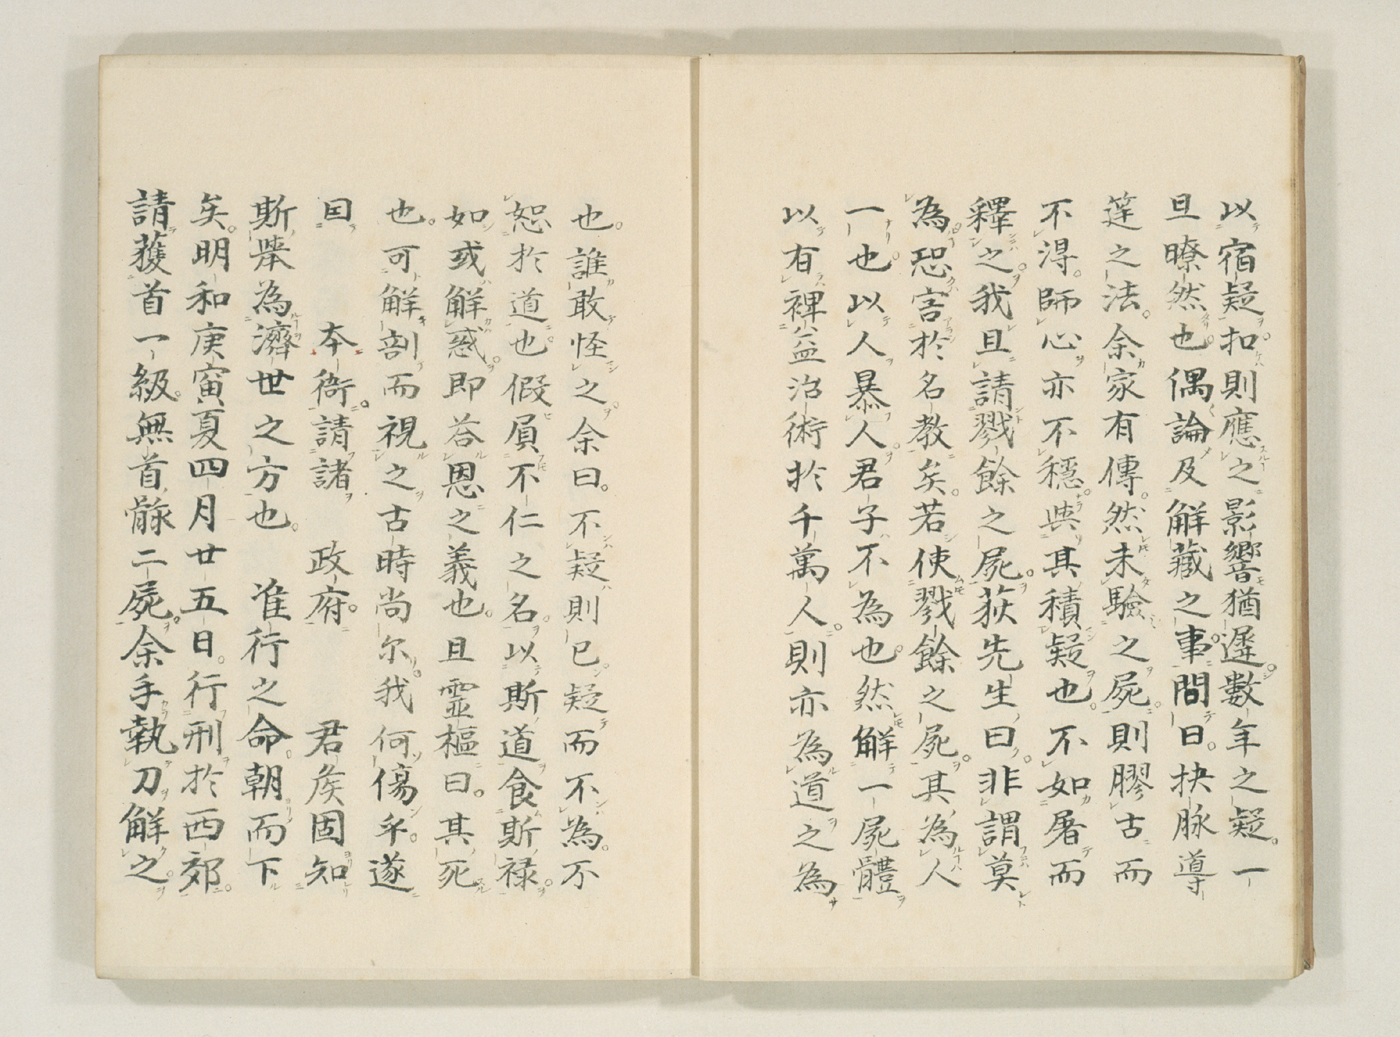 以宿疑扣則應之影響猶遲數年之疑一
旦瞭然也偶論及解藏之事間曰抉脉導
筳之法余家有傳然未驗之屍則膠古而
不得師心亦不穩與其積疑也不如屠而
釋之我且請戮餘之屍荻先生曰非謂莫
為恐害於名教矣若使戮餘之屍其為人
一也以人暴人君子不為也然解一屍體
以有裨益治術於千萬人則亦為道之為
也誰敢怪之余曰不疑則已疑而不為不
恕於道也假員不仁之名以斯道食斯禄
如或解惑即荅恩之義也且靈樞曰其死
也可解剖而視之古時尚尔我何傷乎遂
囯 夲衙請諸 政府 君矦固知
斯舉為濟世之方也 准行之命朝而下
矣明和庚寅夏四月廿五日行刑於西郊
請獲首一級無首骵二屍余手執刀解之